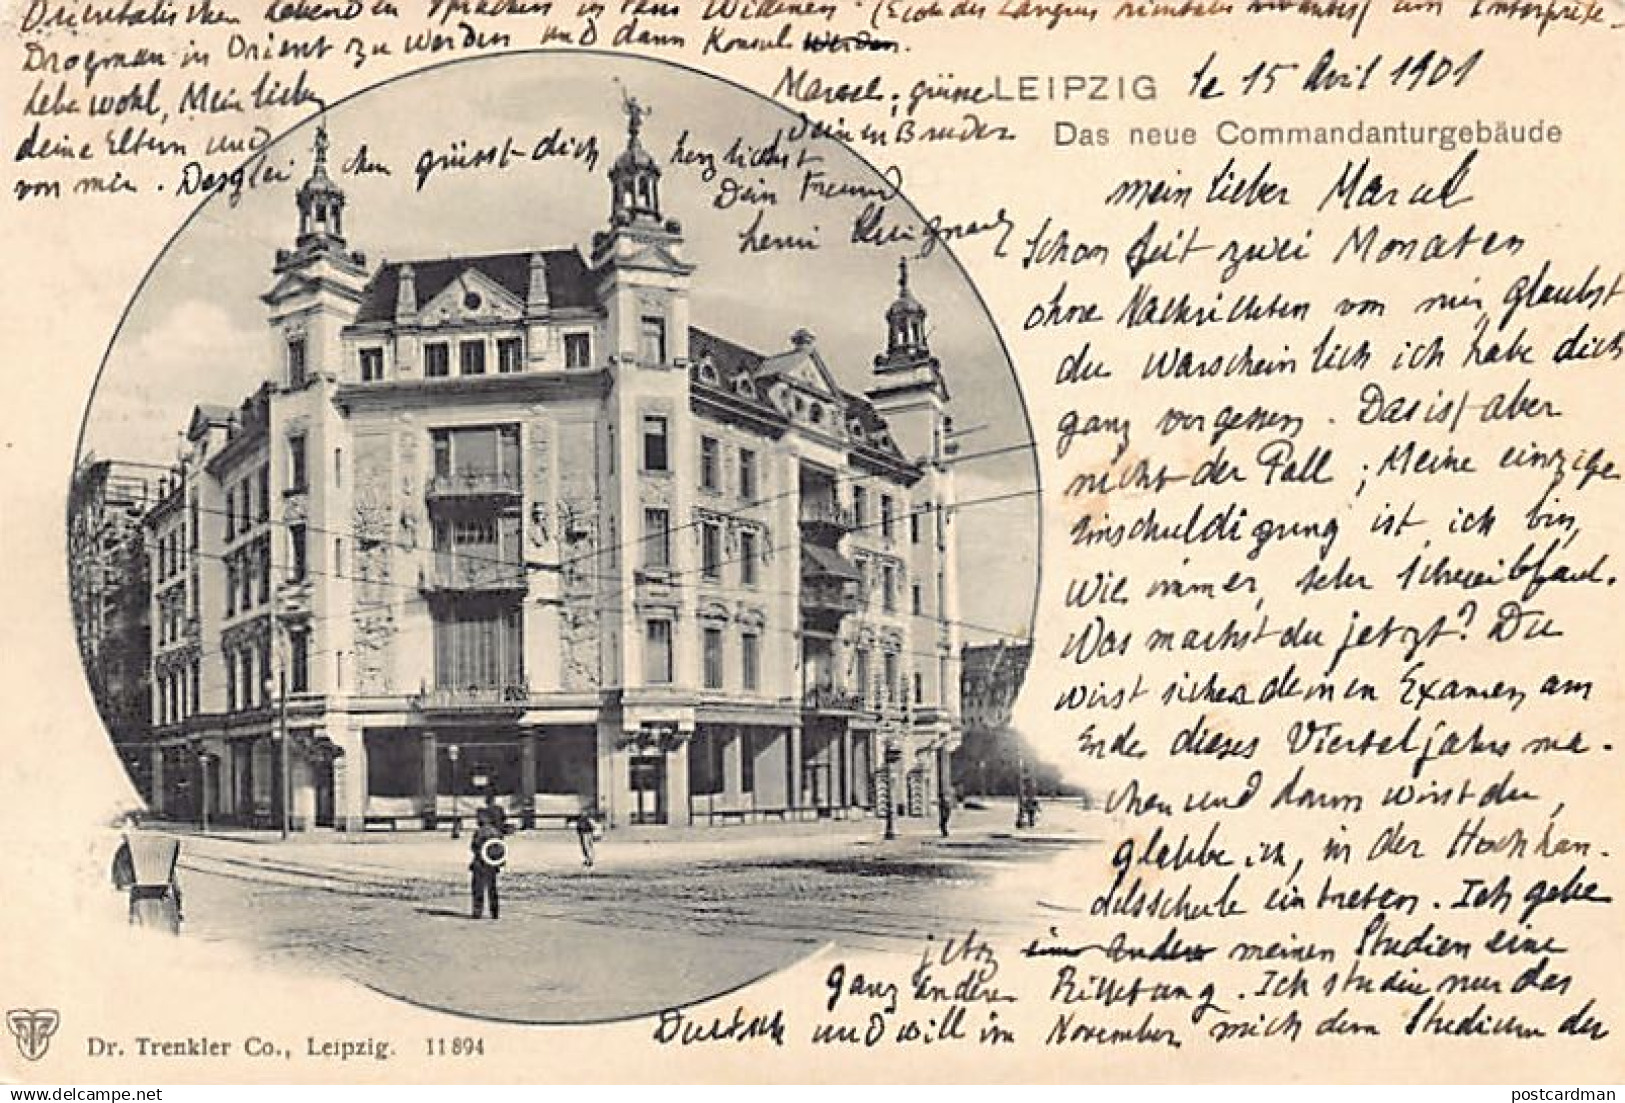 LEIPZIG le 15 Avril 1901
Das neue Commandanturgebäude
mein lieber Marcel
Schon seit zwei Monaten
ohne Nachrichten von mir, glaubst
du warscheinlich ich habe dich
ganz vergessen. Das ist aber
nicht der Fall; Meine einzige
Einschuldigung ist, ich bin,
wie immer, sehr schreibfaul.
Was machst du jetzt? Du
wirst sicher deinen Examen am
Ende dieses Vierteljahrs ma-
chen und dann wirst du,
glaube ich, in der Hochhan-
delsschule eintreten. Ich gebe
jetz eine andere meinen Studien eine
ganz andere Richtung. Ich studiere nur das
Deutsch und will im November mich dem Studium der
Orientalischen lebenden Sprachen in Paris widmen (Ecole des langues orientales vivantes) um Interprete-
Drogman in Orient zu werden und dann Konsul werden.
Lebe wohl, Mein lieber
Marcel; grüsse
deine Eltern und
deinen Bruder
von mir. Desgleichen grüsst dich herzlichst
Dein Freund
henri
Dr. Trenkler Co., Leipzig. 11894
postcardman